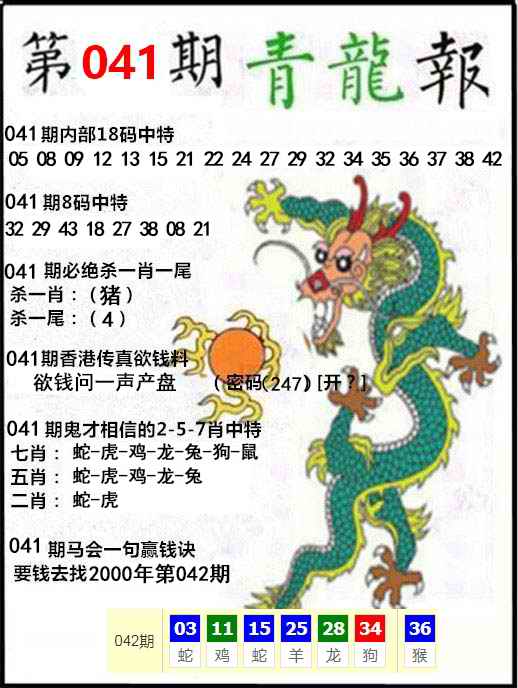 第041期青龍報
041期内部18码中特
05 08 09 12 13 15 21 22 24 27 29 32 34 35 36 37 38 42
041期8码中特
32 29 43 18 27 38 08 21
041 期必绝杀一肖一尾
杀一肖：（猪）
杀一尾：（4）
041期香港传真欲钱料
欲钱问一声产盘 （密码(247)[开？]
041期鬼才相信的2-5-7肖中特
七肖： 蛇-虎-鸡-龙-兔-狗-鼠
五肖： 蛇-虎-鸡-龙-兔
二肖： 蛇-虎
041期马会一句赢钱诀
要钱去找2000年第042期
042期 03 11 15 25 28 34 36
蛇 鸡 蛇 羊 龙 狗 猴